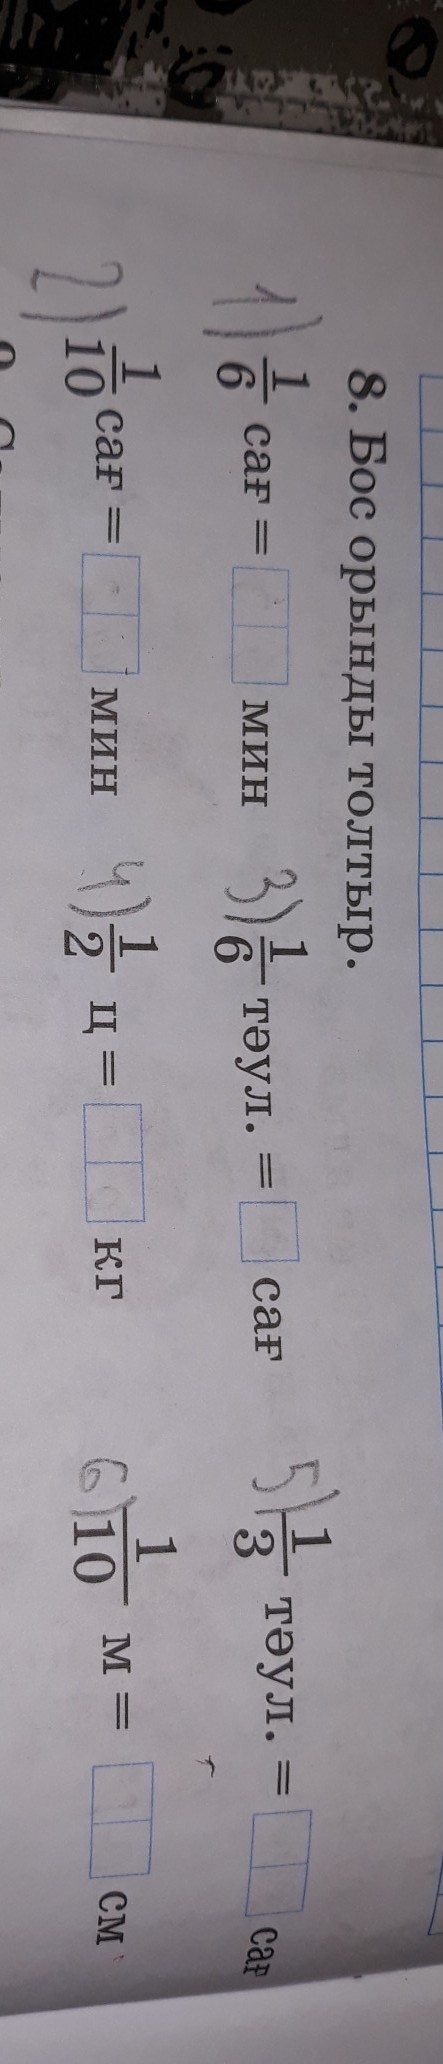 8. Бос орынды толтыр.
1) 1/6 сағ = мин 3) 1/6 тәул. = сағ 5) 1/3 тәул. = сағ
2) 1/10 сағ = мин 4) 1/2 ц = кг 6) 1/10 м = см